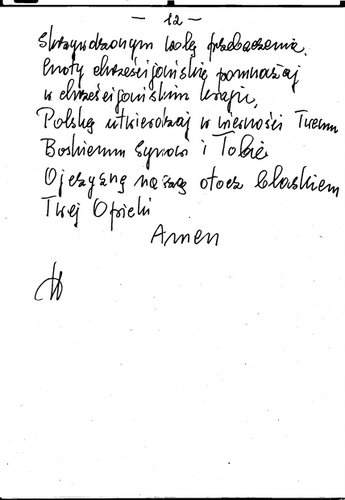 - 12 -
skrzywdzonym wolę przebaczenia.
Cnoty chrześcijańskie pomnażaj
w chrześcijańskim kraju,
Polskę utwierdzaj w wierności Twemu
Boskiemu Synowi i Tobie
Ojczyznę naszą otocz blaskiem
Twej Opieki
Amen